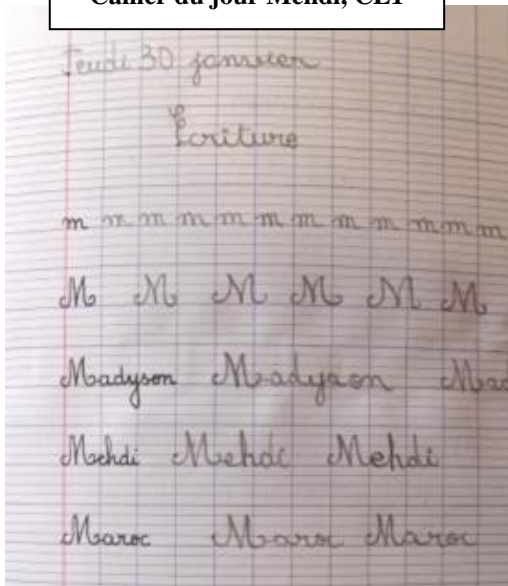 Cahier du jour Mehdi, CE1
Jeudi 30 janvier
Ecriture
m m m m m m m m m m m m
M M M M M M
Madyson Madyson Mad
Mehdi Mehdi Mehdi
Maroc Maroc Maroc